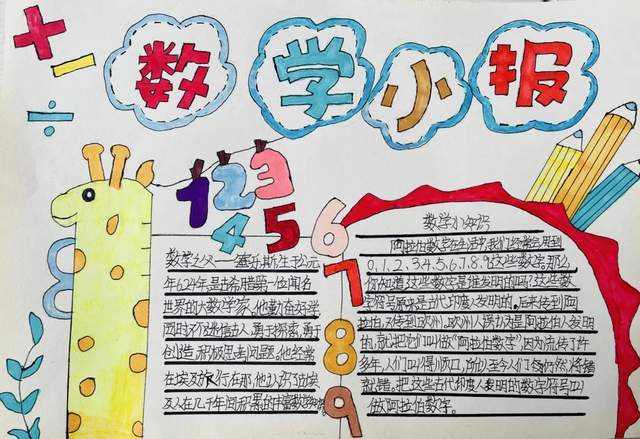 数学小报
+
-
÷
8
1 2 3
4 5 6
7
8
9
数学之父——塞乐斯生于公元
年624年,是古希腊第一位闻名
世界的大数学家。他勤奋好学
同时不迷信古人,勇于探索,勇于
创造,积极思考问题。他经常
在埃及旅行在那,他认识了古埃
及人在几千年间积累的丰富数学知识
数学小知识
阿拉伯数字在生活中,我们经常会用到
0.1.2.3.4.5.6.7.8.9这些数字。那么
你知道这些数字是谁发明的吗?这些数
字符号原来是古代印度人发明的。后来传到阿
拉伯,又传到欧洲。欧洲人误以为是阿拉伯人发明
的,就把它们叫做“阿拉伯数字”因为流传了许
多年,人们叫得顺口,所以至今人们仍然将错
就错。把这些古代印度人发明的数字符号叫
做阿拉伯数字。